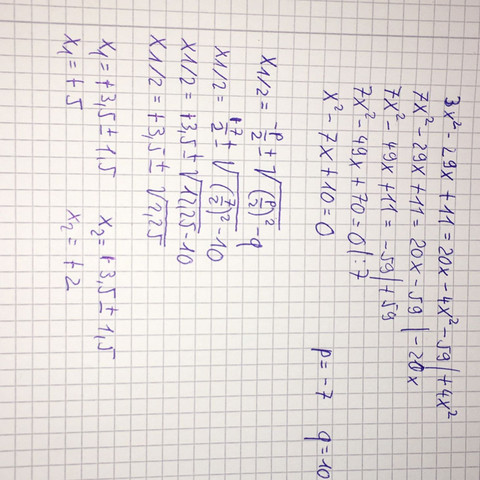 3x² - 29x + 11 = 20x - 4x² - 59 | + 4x²
7x² - 29x + 11 = 20x - 59 | - 20x
7x² - 49x + 11 = -59 | + 59
7x² - 49x + 70 = 0 | : 7
x² - 7x + 10 = 0 p = -7 q = 10
x1/2 = -p/2 ± √((p/2)² - q)
x1/2 = +7/2 ± √((7/2)² - 10)
x1/2 = +3,5 ± √(12,25 - 10)
x1/2 = +3,5 ± √2,25
x₁ = +3,5 ± 1,5 x₂ = +3,5 ± 1,5
x₁ = +5 x₂ = +2